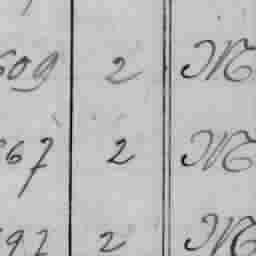 609 2 M
67 2 M
97 2 M